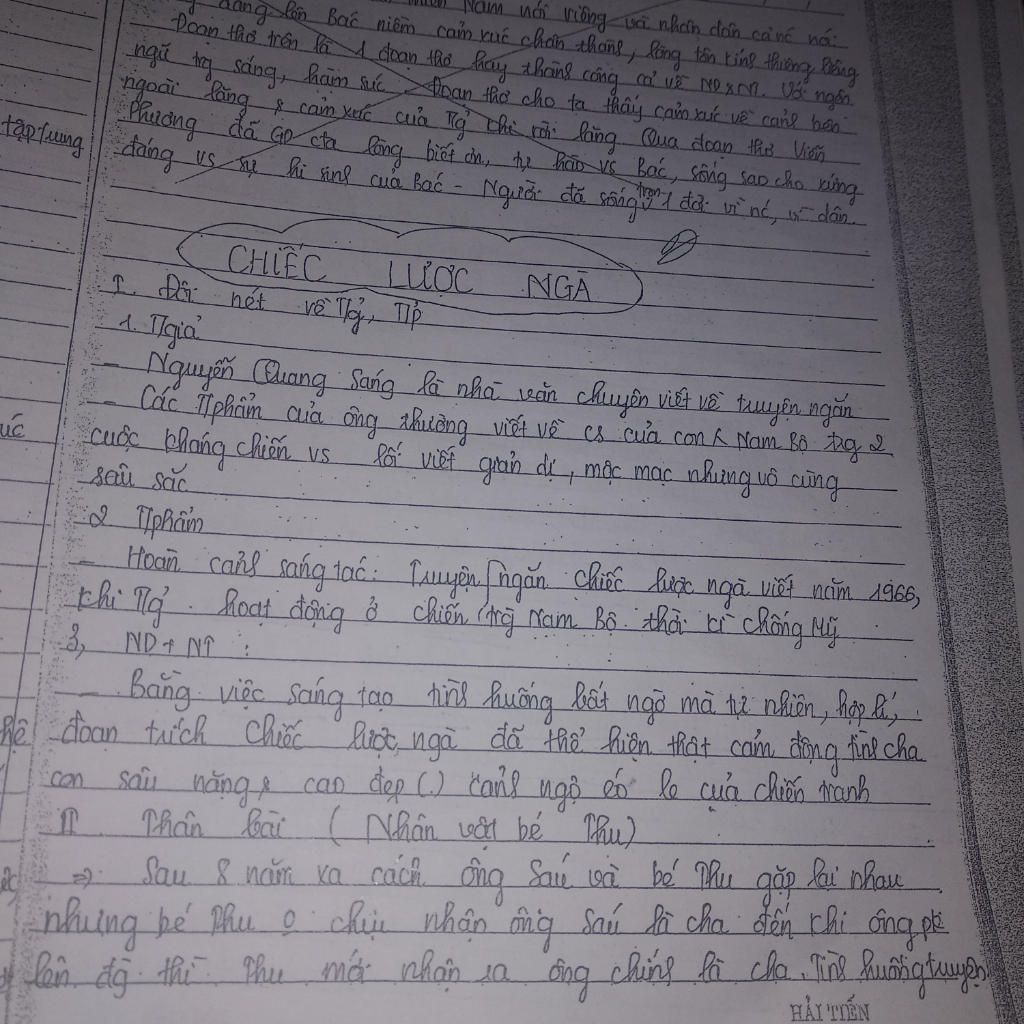 Nam nói riêng và nhân dân cả nc nói
dâng lên Bác niềm cảm xúc chân thành, lòng tôn kính thiêng liêng
Đoạn thơ trên là 1 đoạn thơ hay thành công cả về ND & NT. Với ngôn
ngữ trg sáng, hàm súc Đoạn thơ cho ta thấy cảm xúc về cảnh bên
ngoài lăng & cảm xúc của Tgỉ khi rời lăng Qua đoạn thơ Viễn
Phương đã GD cta lòng biết ơn, tự hào vs Bác, sống sao cho xứng
đáng vs sự hi sinh của Bác - Người đã sống trọn 1 đời vì nc, vì dân.
tập trung
CHIẾC LƯỢC NGÀ
I. Đôi nét về Tgỉ, TP
1. Tgiả
- Nguyễn Quang Sáng là nhà văn chuyên viết về truyện ngắn
- Các Tphẩm của ông thường viết về cs của con Nam Bộ trg 2
úc
cuộc kháng chiến vs lối viết giản dị, mộc mạc nhưng vô cùng
sâu sắc
2 Tphẩm
- Hoàn cảnh sáng tác: Truyện ngắn chiếc lược ngà viết năm 1966,
khi Tgỉ hoạt động ở chiến trg Nam Bộ thời kì chống Mỹ
3, ND + NT :
- Bằng việc sáng tạo tình huống bất ngờ mà tự nhiên, hợp lí,
đoạn trích Chiếc lược ngà đã thể hiện thật cảm động tình cha
con sâu nặng & cao đẹp (.) cảnh ngộ éo le của chiến tranh
II Thân bài ( Nhân vật bé Thu)
=> Sau 8 năm xa cách ông Sáu và bé Thu gặp lại nhau
nhưng bé Thu o chịu nhận ông Sáu là cha đến khi ông phải
lên đg thì Thu mới nhận ra ông chính là cha. Tình huống truyện
HẢI TIẾN